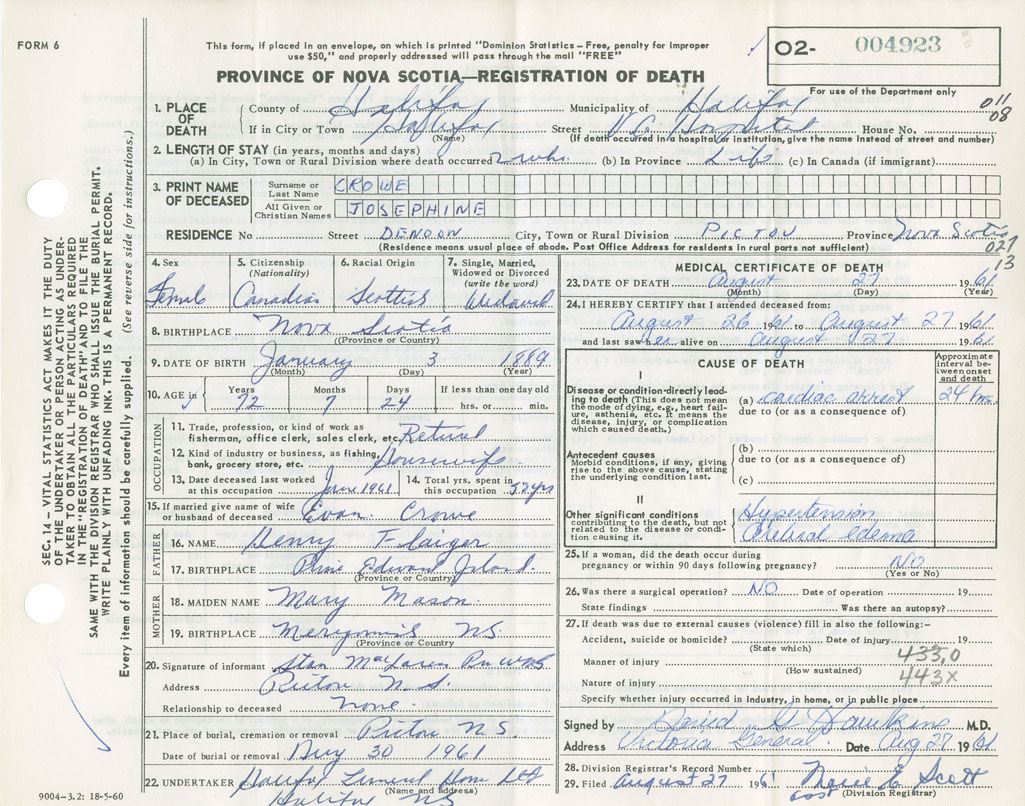 FORM 6
This form, if placed in an envelope, on which is printed "Dominion Statistics – Free, penalty for improper
use $50," and properly addressed will pass through the mail "FREE"
O2- 004923
For use of the Department only
PROVINCE OF NOVA SCOTIA—REGISTRATION OF DEATH
011
08
1. PLACE OF DEATH County of Halifax Municipality of Halifax
If in City or Town Halifax Street V.G. Hospital House No.
(Name) (If death occurred in a hospital or institution, give the name instead of street and number)
2. LENGTH OF STAY (in years, months and days)
(a) In City, Town or Rural Division where death occurred 2 whs. (b) In Province Life (c) In Canada (if immigrant)
3. PRINT NAME OF DECEASED
Surname or Last Name CROWE
All Given or Christian Names JOSEPHINE
RESIDENCE No Street DENOON City, Town or Rural Division PICTOU Province Nova Scotia
(Residence means usual place of abode. Post Office Address for residents in rural parts not sufficient)
027
13
4. Sex Female
5. Citizenship (Nationality) Canadian
6. Racial Origin Scottish
7. Single, Married, Widowed or Divorced (write the word) Widowed
8. BIRTHPLACE Nova Scotia
(Province or Country)
9. DATE OF BIRTH January 3 1889
(Month) (Day) (Year)
10. AGE in Years 72 Months 7 Days 24 If less than one day old hrs. or min.
OCCUPATION
11. Trade, profession, or kind of work as
fisherman, office clerk, sales clerk, etc. Retired
12. Kind of industry or business, as fishing,
bank, grocery store, etc. Housewife
13. Date deceased last worked at this occupation June 1961 14. Total yrs. spent in this occupation 52 yrs
15. If married give name of wife
or husband of deceased Evan Crowe
FATHER
16. NAME Henry
17. BIRTHPLACE Prince Edward Island.
(Province or Country)
MOTHER
18. MAIDEN NAME Mary Mason
19. BIRTHPLACE Merigomish N.S.
(Province or Country
20. Signature of informant Stan MacLaren
Address Pictou N.S.
Relationship to deceased None
21. Place of burial, cremation or removal Pictou N.S.
Date of burial or removal Aug 30 1961
22. UNDERTAKER Halifax Funeral Home Ltd
(Name and address)
Halifax N.S.
9004–3.2: 18-5-60
MEDICAL CERTIFICATE OF DEATH
23. DATE OF DEATH August 27 1961
(Month) (Day) (Year)
24. I HEREBY CERTIFY that I attended deceased from:
August 26 1961 to August 27 1961
and last saw her alive on August 27 1961
CAUSE OF DEATH
Approximate interval between onset and death
I
Disease or condition directly leading to death (This does not mean the mode of dying, e.g., heart failure, asthenia, etc. It means the disease, injury, or complication which caused death.)
(a) cardiac arrest 24 hrs.
due to (or as a consequence of)
Antecedent causes
Morbid conditions, if any, giving rise to the above cause, stating the underlying condition last.
(b)
due to (or as a consequence of)
(c)
II
Other significant conditions contributing to the death, but not related to the disease or condition causing it.
Hypertension
Cerebral edema
25. If a woman, did the death occur during
pregnancy or within 90 days following pregnancy? NO
(Yes or No)
26. Was there a surgical operation? NO Date of operation 19
State findings Was there an autopsy?
27. If death was due to external causes (violence) fill in also the following:–
Accident, suicide or homicide? Date of injury 19
(State which)
Manner of injury 433,0
(How sustained)
Nature of injury 443X
Specify whether injury occurred in industry, in home, or in public place
Signed by David G Hawkins M.D.
Address Victoria General Date Aug 27 1961
28. Division Registrar's Record Number
29. Filed August 27 1961 Marie E. Scott
(Division Registrar)
SEC. 14 – VITAL STATISTICS ACT MAKES IT THE DUTY
OF THE UNDERTAKER OR PERSON ACTING AS UNDER-
TAKER TO OBTAIN ALL THE PARTICULARS REQUIRED
IN THE "REGISTRATION OF DEATH" AND TO FILE THE
SAME WITH THE DIVISION REGISTRAR WHO SHALL ISSUE THE BURIAL PERMIT.
WRITE PLAINLY WITH UNFADING INK. THIS IS A PERMANENT RECORD.
Every item of information should be carefully supplied. (See reverse side for instructions.)